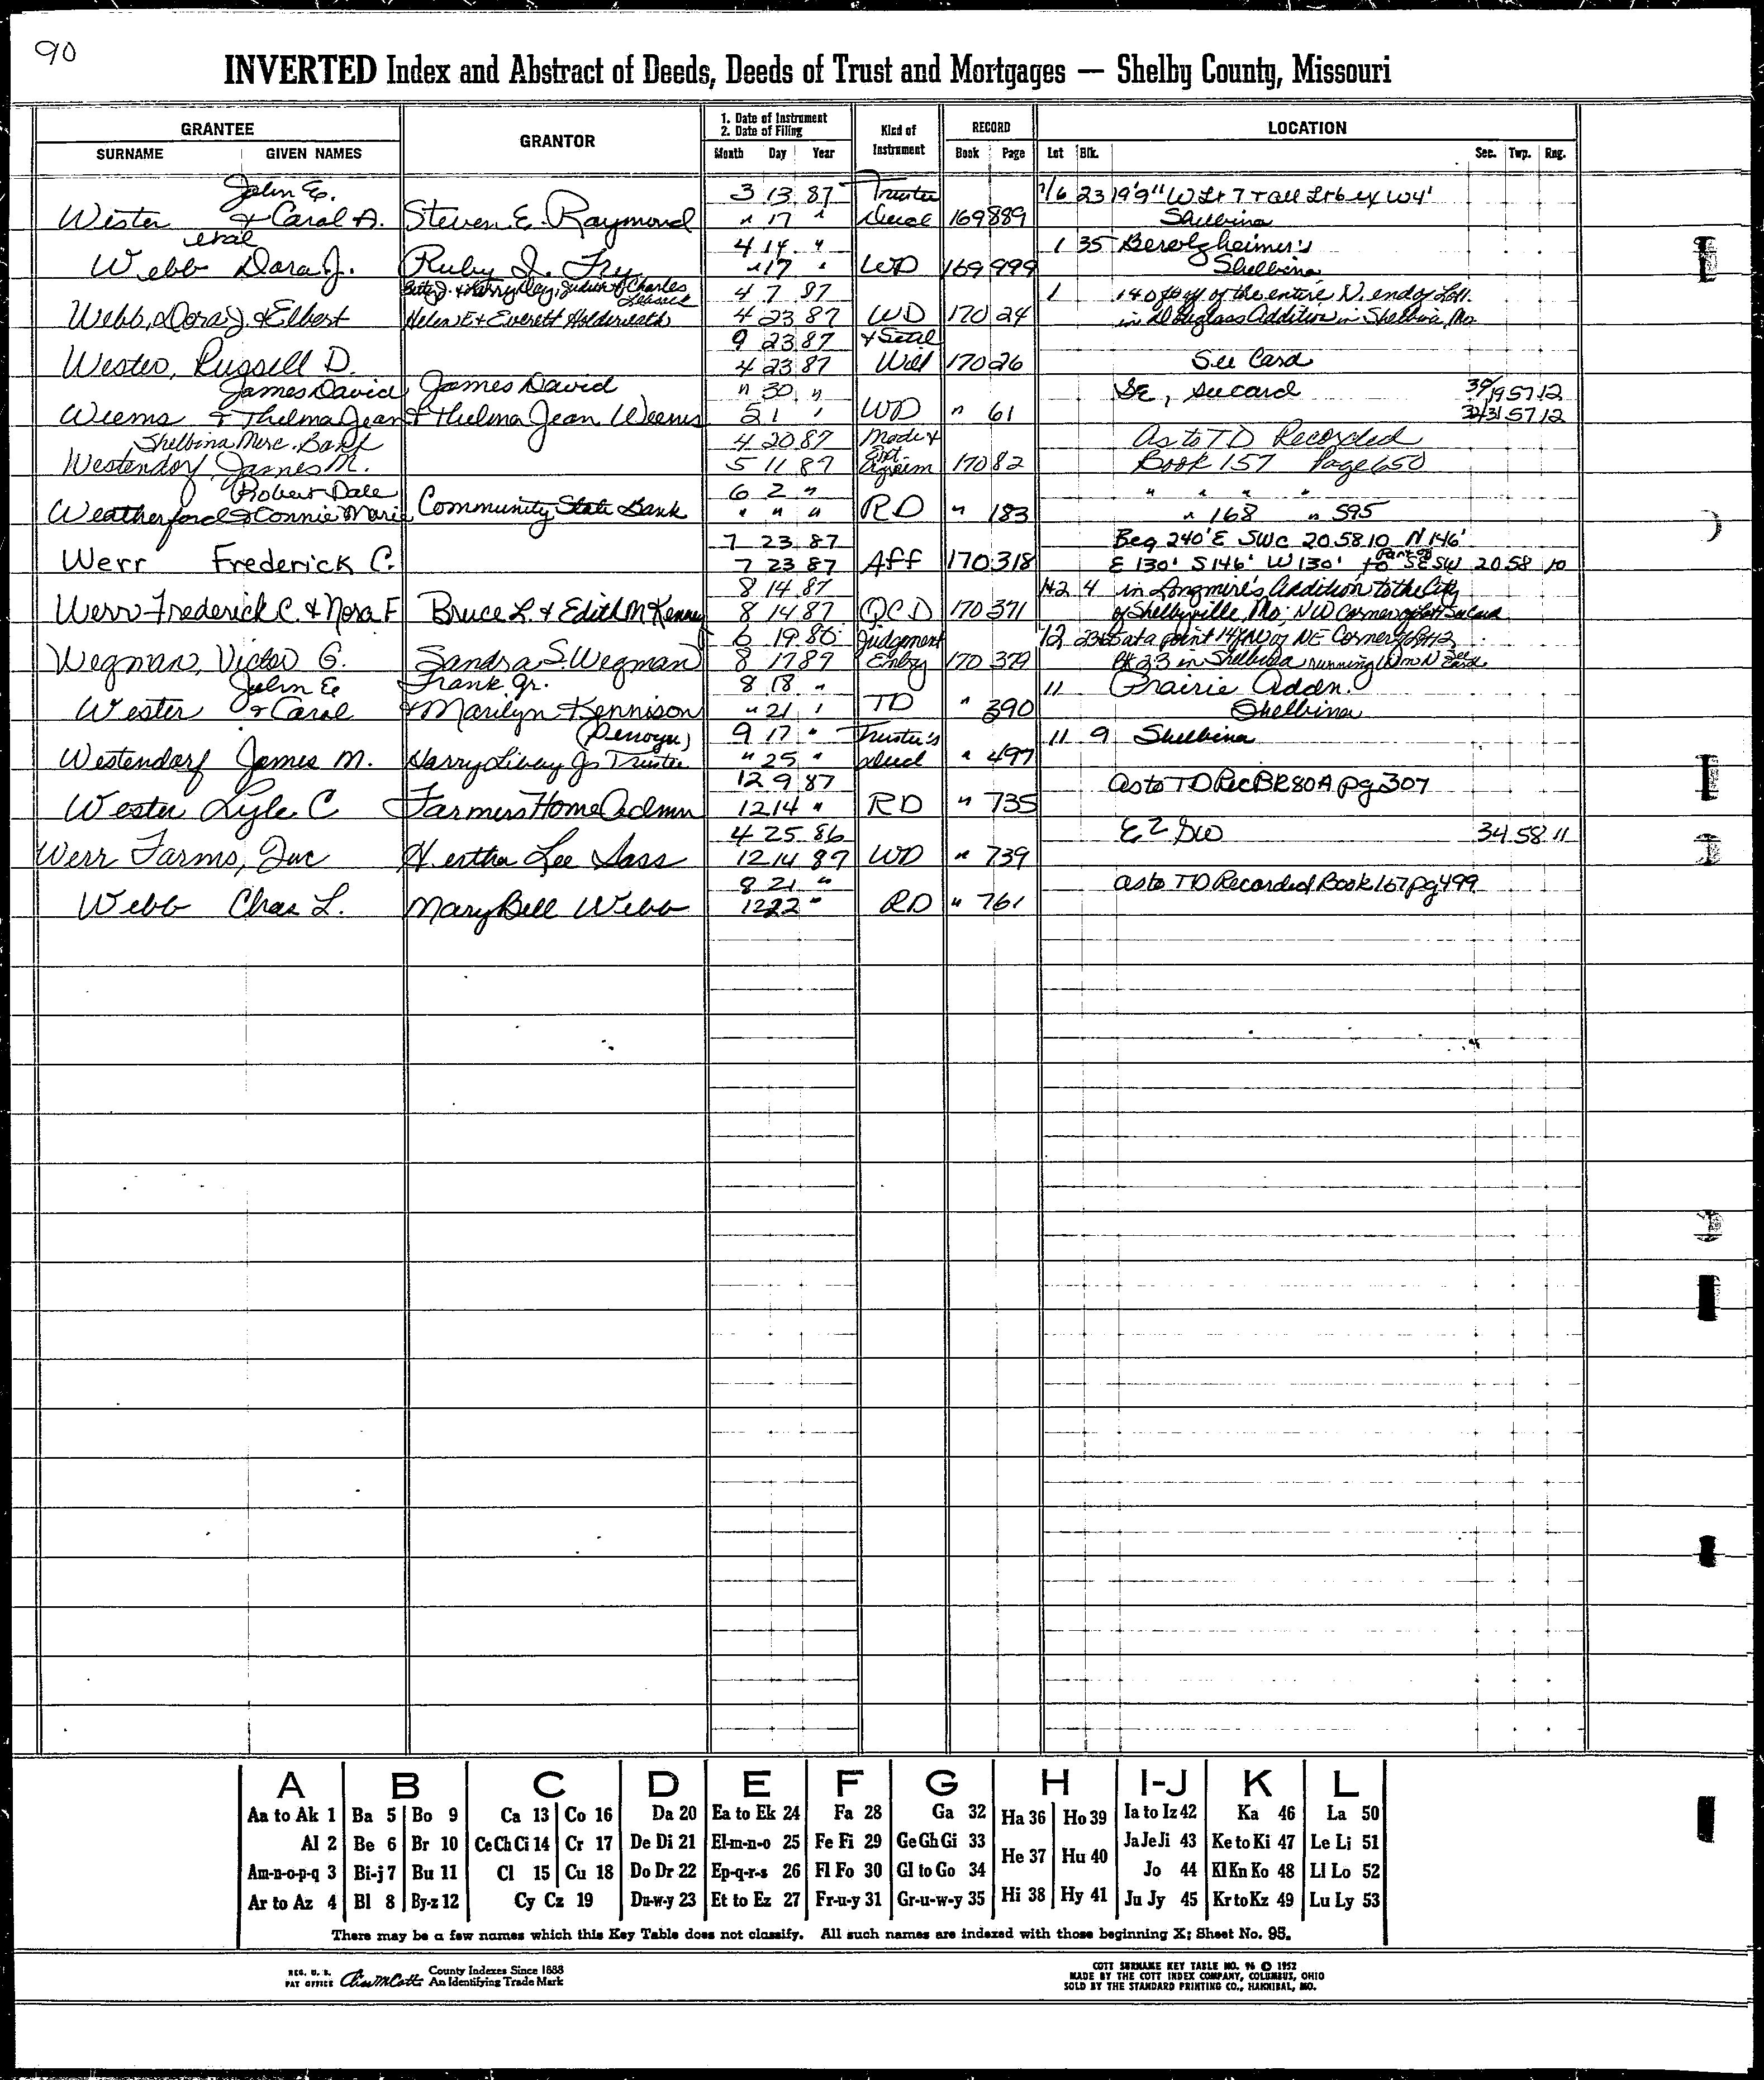 90
INVERTED Index and Abstract of Deeds, Deeds of Trust and Mortgages — Shelby County, Missouri
GRANTEE GRANTOR 1. Date of Instrument 2. Date of Filing Kind of Instrument RECORD LOCATION
SURNAME GIVEN NAMES Month Day Year Book Page Lot Blk. Sec. Twp. Rng.
John E. 3 13 87 Trustee 7/6 23 19'9" W Lt 7 + all Lt 6 ex W4'
Wester & Carol A. Steven E. Raymond " 17 " Deed 169 889 Shelbina
etal 4 14 " 1 35 Berolzheimer's
Webb Dora J. Ruby I. Fry " 17 " WD 169 999 Shelbina
Betty J. & Harry Day, Judith & Charles 4 7 87 1 140 ft off of the entire N. end of Lot 1.
Webb, Dora J. & Elbert Helen E + Everett Holderieath 4 23 87 WD 170 24 in Douglass Addition in Shelbina, Mo
9 23 87 + Setal
Wester, Russell D. 4 23 87 Will 170 26 See Card
James David James David " 30 " SE, see card 30/19 57 12
Weems & Thelma Jean & Thelma Jean Weems 5 1 " WD " 61 57 12
Shelbina Merc. Bank 4 20 87 Modi + As to TD Recorded
Westendorf James M. 5 11 87 Ext. Agreem 170 82 Book 157 Page 650
Robert Dale 6 2 " " " " "
Weatherford & Connie Marie Community State Bank " " " RD " 183 " 168 " 595
7 23 87 Beg 240' E SWc 20 58 10 N 146'
Werr Frederick C. 7 23 87 Aff 170 318 E 130' S 146' W 130' to Part of SESW 20 58 10
8 14 87 1+2 4 in Longmire's Addition to the City
Werr Frederick C. & Nora F Bruce L. & Edith M Kenney 8 14 87 QCD 170 371 of Shelbyville, Mo, NW Corner of Lot See Card
6 19 86 Judgement 12 23 at a point 14 ft W of NE Corner of Lot 12
Wegman, Victor G. Sandra S. Wegman 8 17 87 Entry 170 379 Bk 23 in Shelbina running W on N See Card
John E Frank Jr. 8 18 " 11 Prairie Addn.
Wester & Carol & Marilyn Kennison " 21 " TD " 390 Shelbina
(Penoyer) 9 17 " Trustee's 11 9 Shelbina
Westendorf James M. Harry Libby Jr Trustee " 25 " deed " 497
12 9 87 As to TD Rec BK 80A pg 307
Wester Lyle C Farmers Home Admn 12 14 " RD " 735
4 25 86 E2 SW 34 58 11
Werr Farms, Inc Hertha Lee Sass 12 14 87 WD " 739
8 21 " as to TD Recorded Book 167 pg 499
Webb Chas L. Mary Bell Webb 12 22 " RD " 761
A B C D E F G H I-J K L
Aa to Ak 1 Ba 5 Bo 9 Ca 13 Co 16 Da 20 Ea to Ek 24 Fa 28 Ga 32 Ha 36 Ho 39 Ia to Iz 42 Ka 46 La 50
Al 2 Be 6 Br 10 Ce Ch Ci 14 Cr 17 De Di 21 El-m-n-o 25 Fe Fi 29 Ge Gh Gi 33 He 37 Hu 40 Ja Je Ji 43 Ke to Ki 47 Le Li 51
Am-n-o-p-q 3 Bi-j 7 Bu 11 Cl 15 Cu 18 Do Dr 22 Ep-q-r-s 26 Fl Fo 30 Gl to Go 34 Jo 44 Kl Kn Ko 48 Ll Lo 52
Ar to Az 4 Bl 8 By-z 12 Cy Cz 19 Du-w-y 23 Et to Ez 27 Fr-u-y 31 Gr-u-w-y 35 Hi 38 Hy 41 Ju Jy 45 Kr to Kz 49 Lu Ly 53
There may be a few names which this Key Table does not classify. All such names are indexed with those beginning X; Sheet No. 95.
REG. U. S. PAT OFFICE County Indexes Since 1888 An Identifying Trade Mark
COTT SURNAME KEY TABLE NO. 96 © 1952
MADE BY THE COTT INDEX COMPANY, COLUMBUS, OHIO
SOLD BY THE STANDARD PRINTING CO., HANNIBAL, MO.